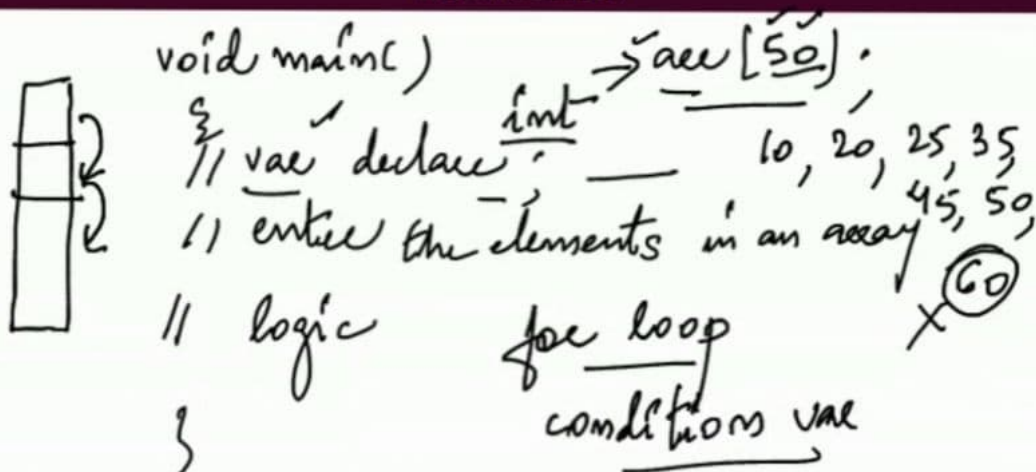 void main()
{
int → arr[50];
// var declare ; —
10, 20, 25, 35,
45, 50,
60
// enter the elements in an array
// logic for loop
conditions var
}